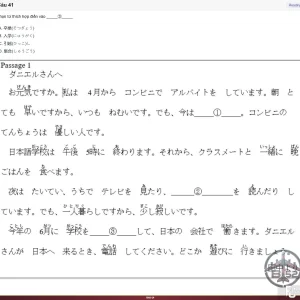 Câu 41
chọn từ thích hợp điền vào ______③______
A. 卒業(そつぎょう)
Passage 1
ダニエルさんへ
お元気ですか。私は 4月から コンビニで アルバイトを しています。朝 と
ても 早いですから、いつも ねむいです。でも、今は______①______。コンビニの
てんちょうは 優しい人です。
日本語学校は 午後 5時に 終わります。それから、クラスメートと 一緒に 晩
ごはんを 食べます。
夜は たいてい、うちで テレビを 見たり、______②______を 読んだり し
ています。でも、一人暮らしですから、少し寂しいです。
今年の 6月に 学校を______③______して、日本の 会社で 働きます。ダニエル
さんが 日本へ 来るとき、電話 してください。どこか 遊びに 行きましょう。